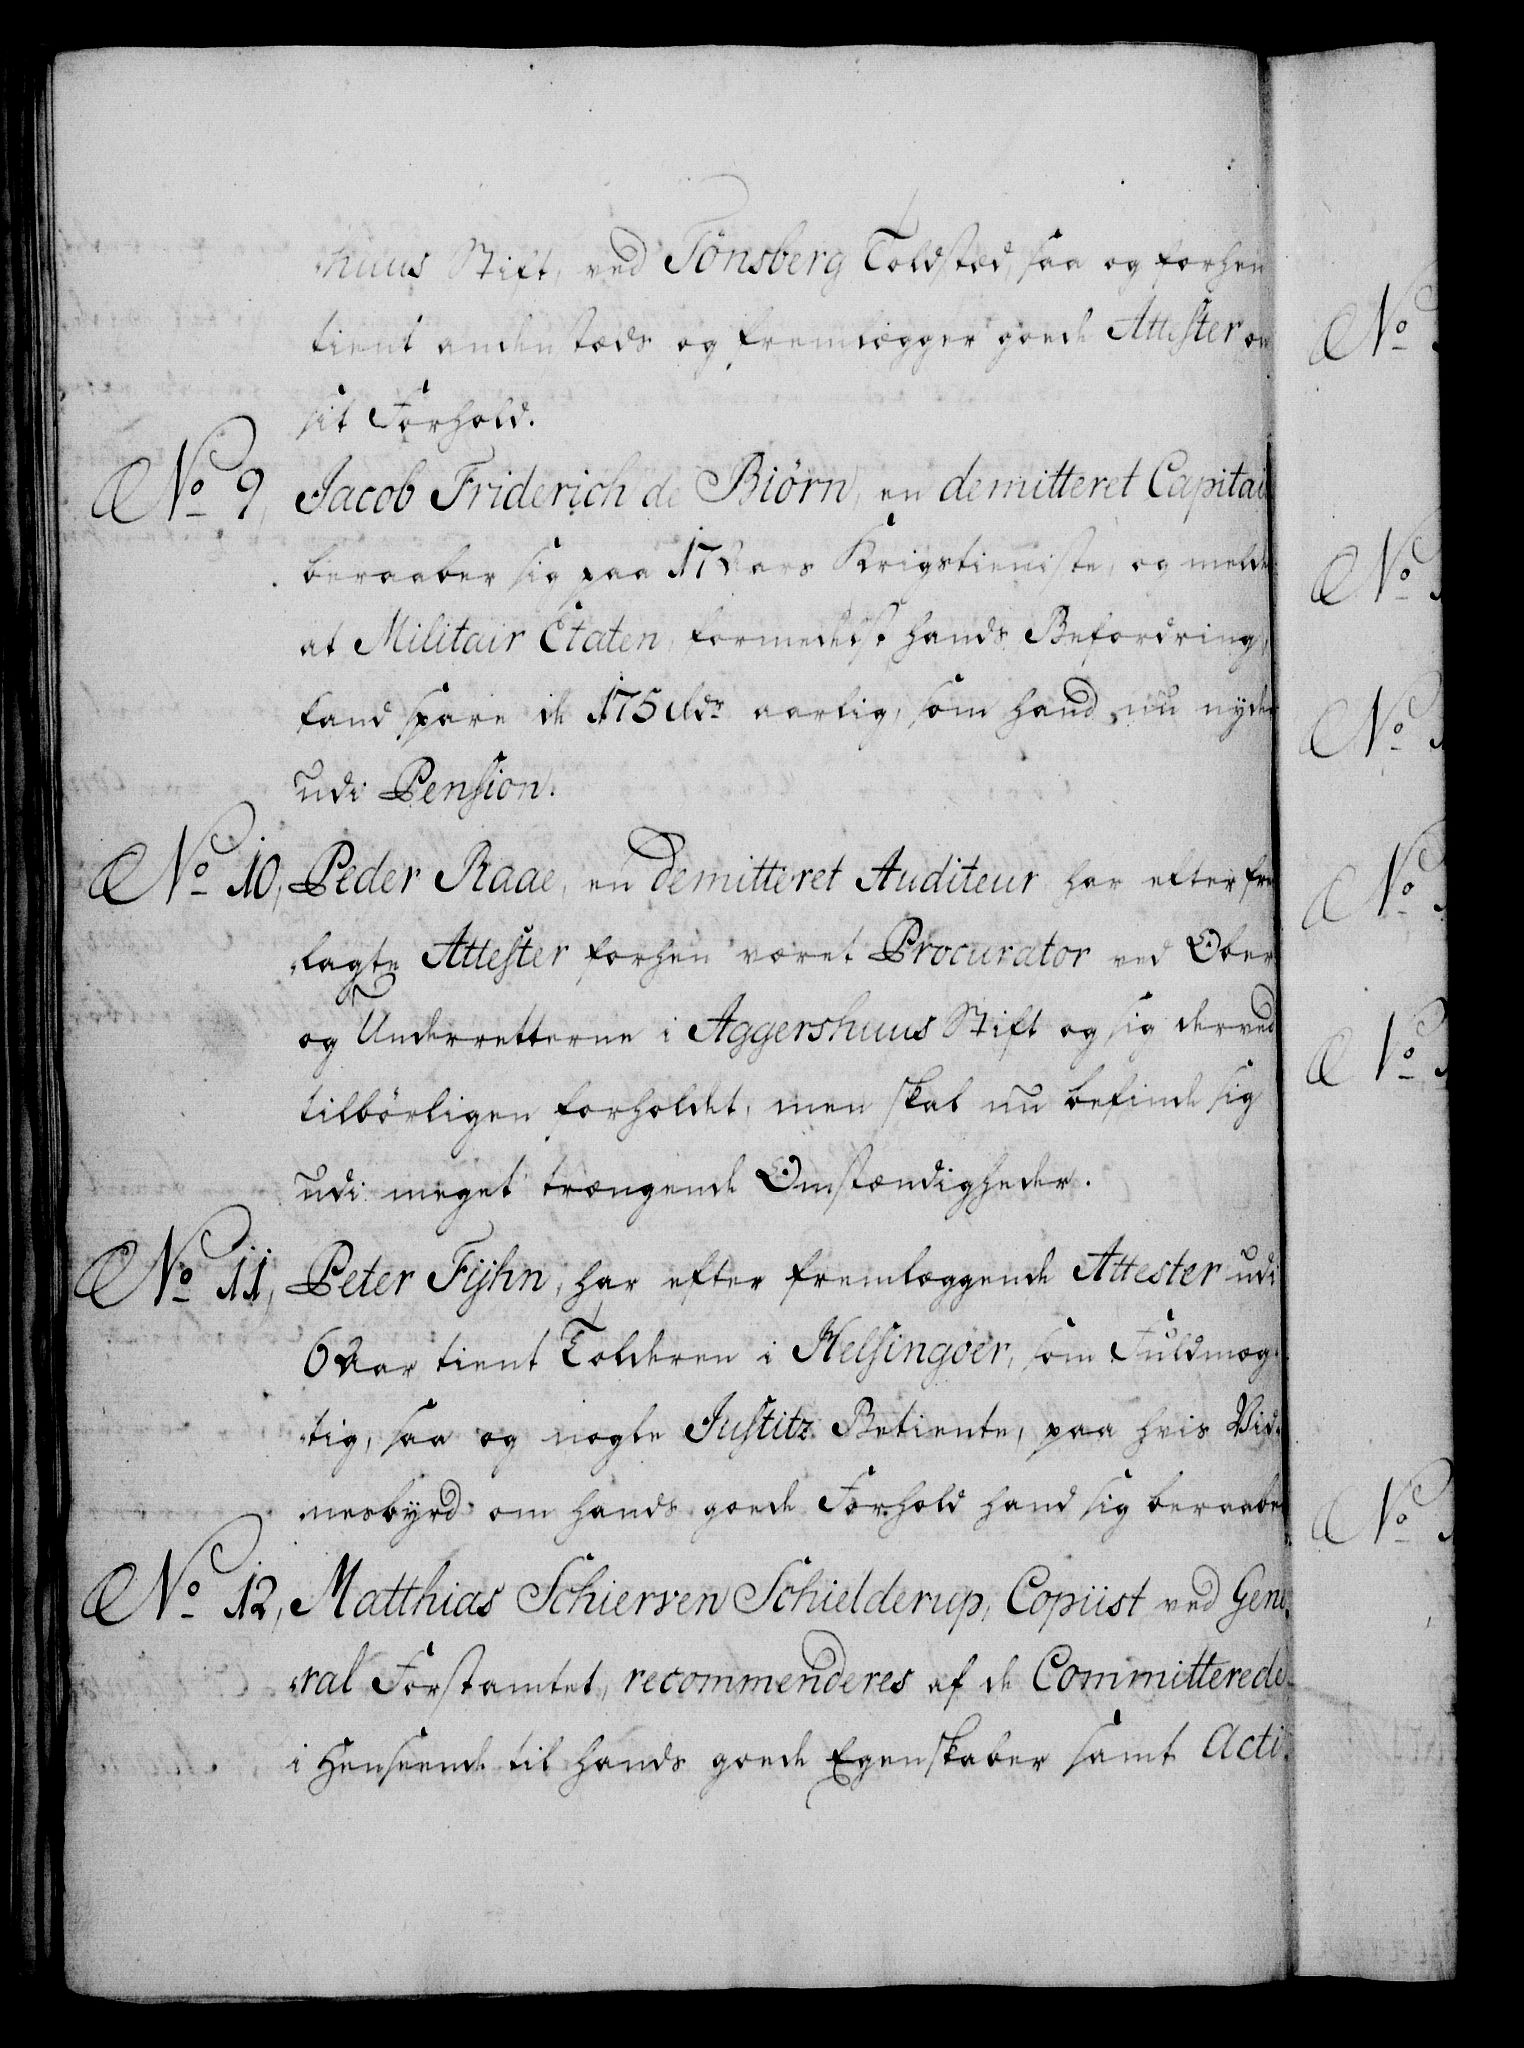 huus Stift, ved Tønsberg Toldsted, saa og forhen
tient andenstæds og fremlægger goede Attester om
sit Forhold.
No 9, Jacob Friderich de Biørn, en demitteret Capitai
beraaber sig paa 17 Aars Krigstieniste, og melde
at Militair Etaten, formedelst hands Befordring,
kand spare de 175 rdr aarlig, som hand nu nyde
udi Pension.
No 10, Peder Raae, en demitteret Auditeur har efter fre
lagte Attester forhen været Procurator ved Ober
og Underretterne i Aggershuus Stift og sig derved
tilbørligen forholdet, men skal nu befinde sig
udi meget trængende Omstændigheder.
No 11, Peter Fijhn, har efter fremlæggende Attester udi
6 Aar tient Tolderen i Helsingøer, som Fuldmæg-
tig, saa og nogle Justitz Betiente, paa hvis Vid-
nesbyrd om hands goede Forhold hand sig beraabe
No 12, Matthias Schierven Schielderup, Copiist ved Gene-
ral Forstamtet, recommenderes af de Committerede
i Henseende til hands goede Egenskaber samt Acti-
No
No
No
No
No
No